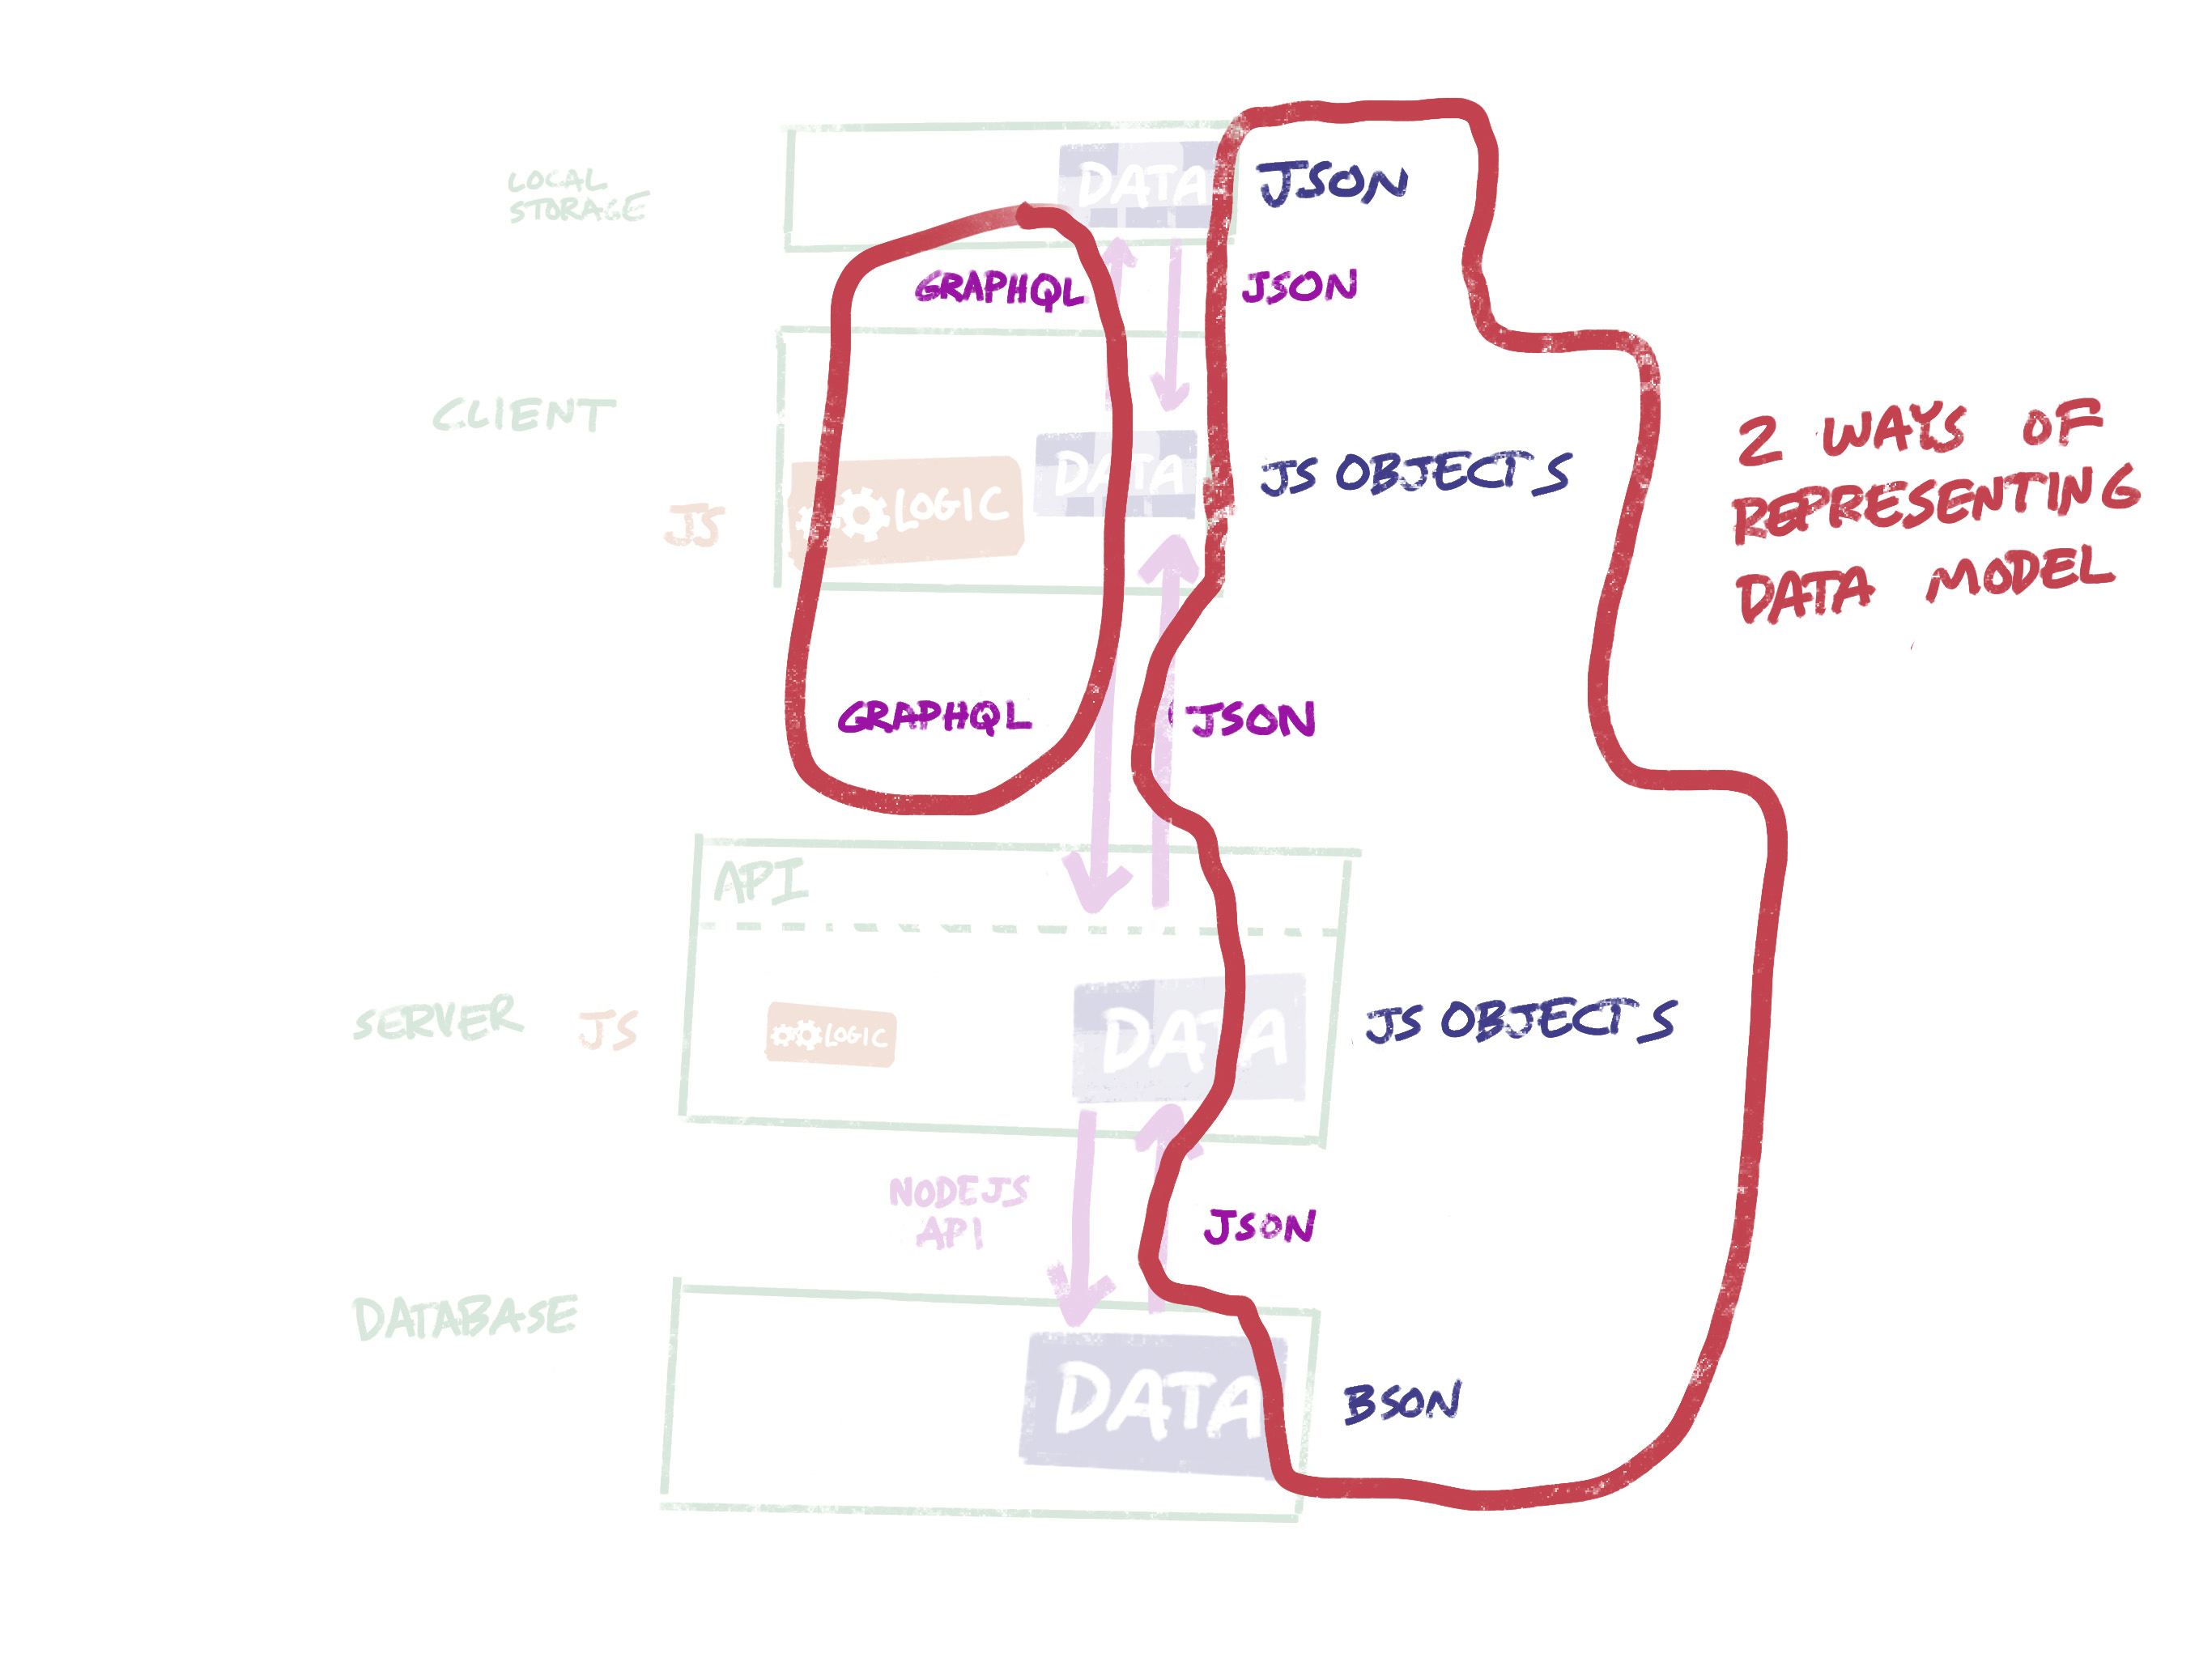 DATA
JSON
LOCAL
STORAGE
GRAPHQL
JSON
CLIENT
DATA
JS OBJECTS
JS
LOGIC
2 WAYS OF
REPRESENTING
DATA MODEL
GRAPHQL
JSON
API
SERVER
JS
LOGIC
DATA
JS OBJECTS
NODEJS
API
JSON
DATABASE
DATA
BSON